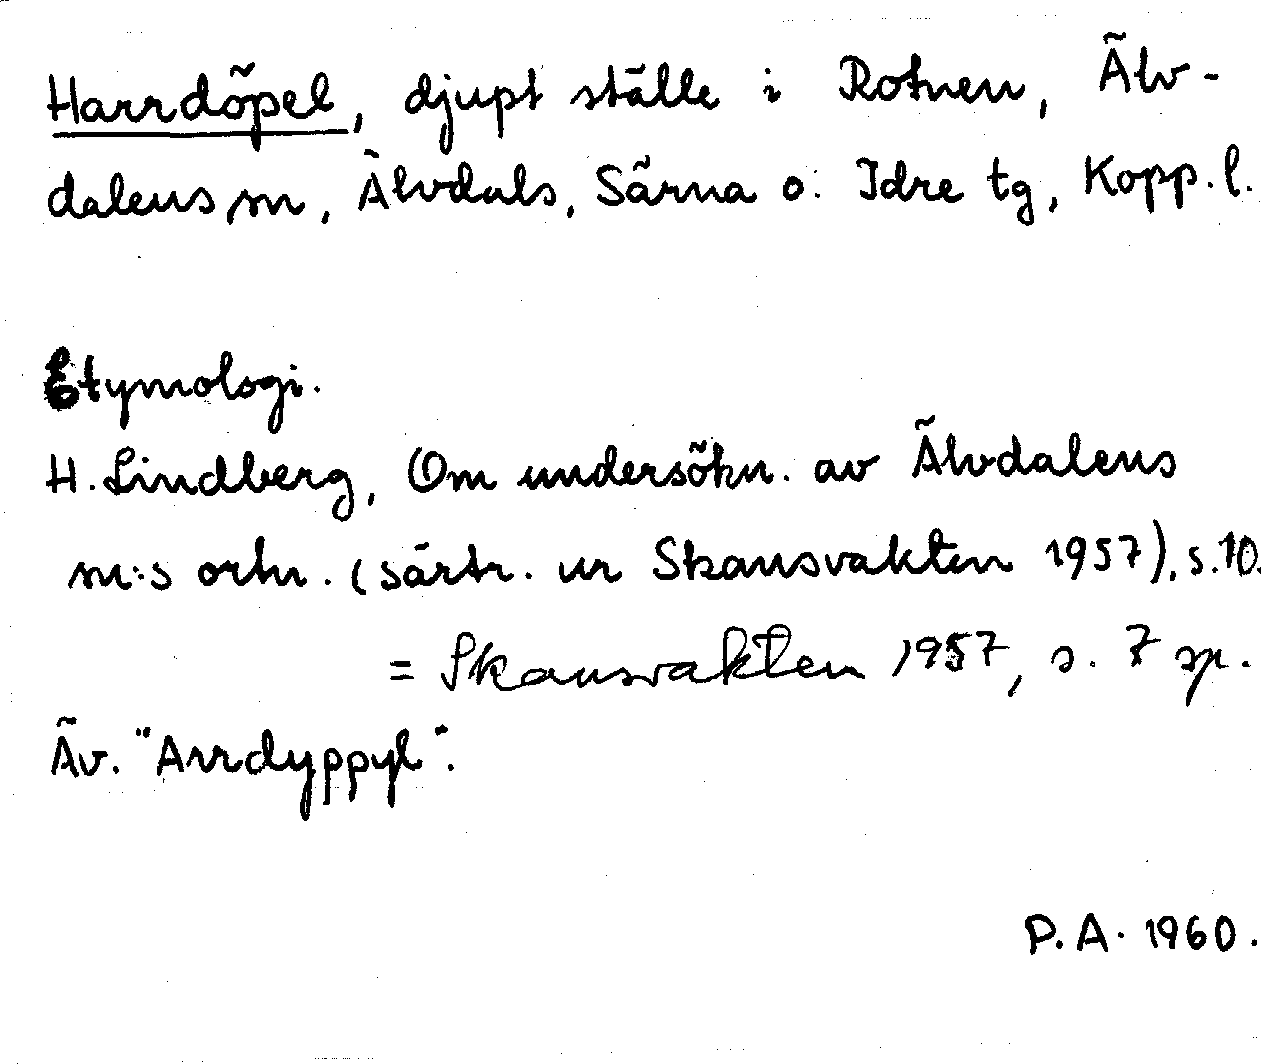 Harrdöpel, djupt ställe i Rotnen, Älv-
dalens sn, Älvdals, Särna o. Idre tg, Kopp. l.
Etymologi.
H. Lindberg, Om undersökn. av Älvdalens
sn:s ortn. (särtr. ur Skansvakten 1957), s. 10.
= Skansvakten 1957, s. 7 sp.
Äv. "Arrdyppyl".
P. A. 1960.